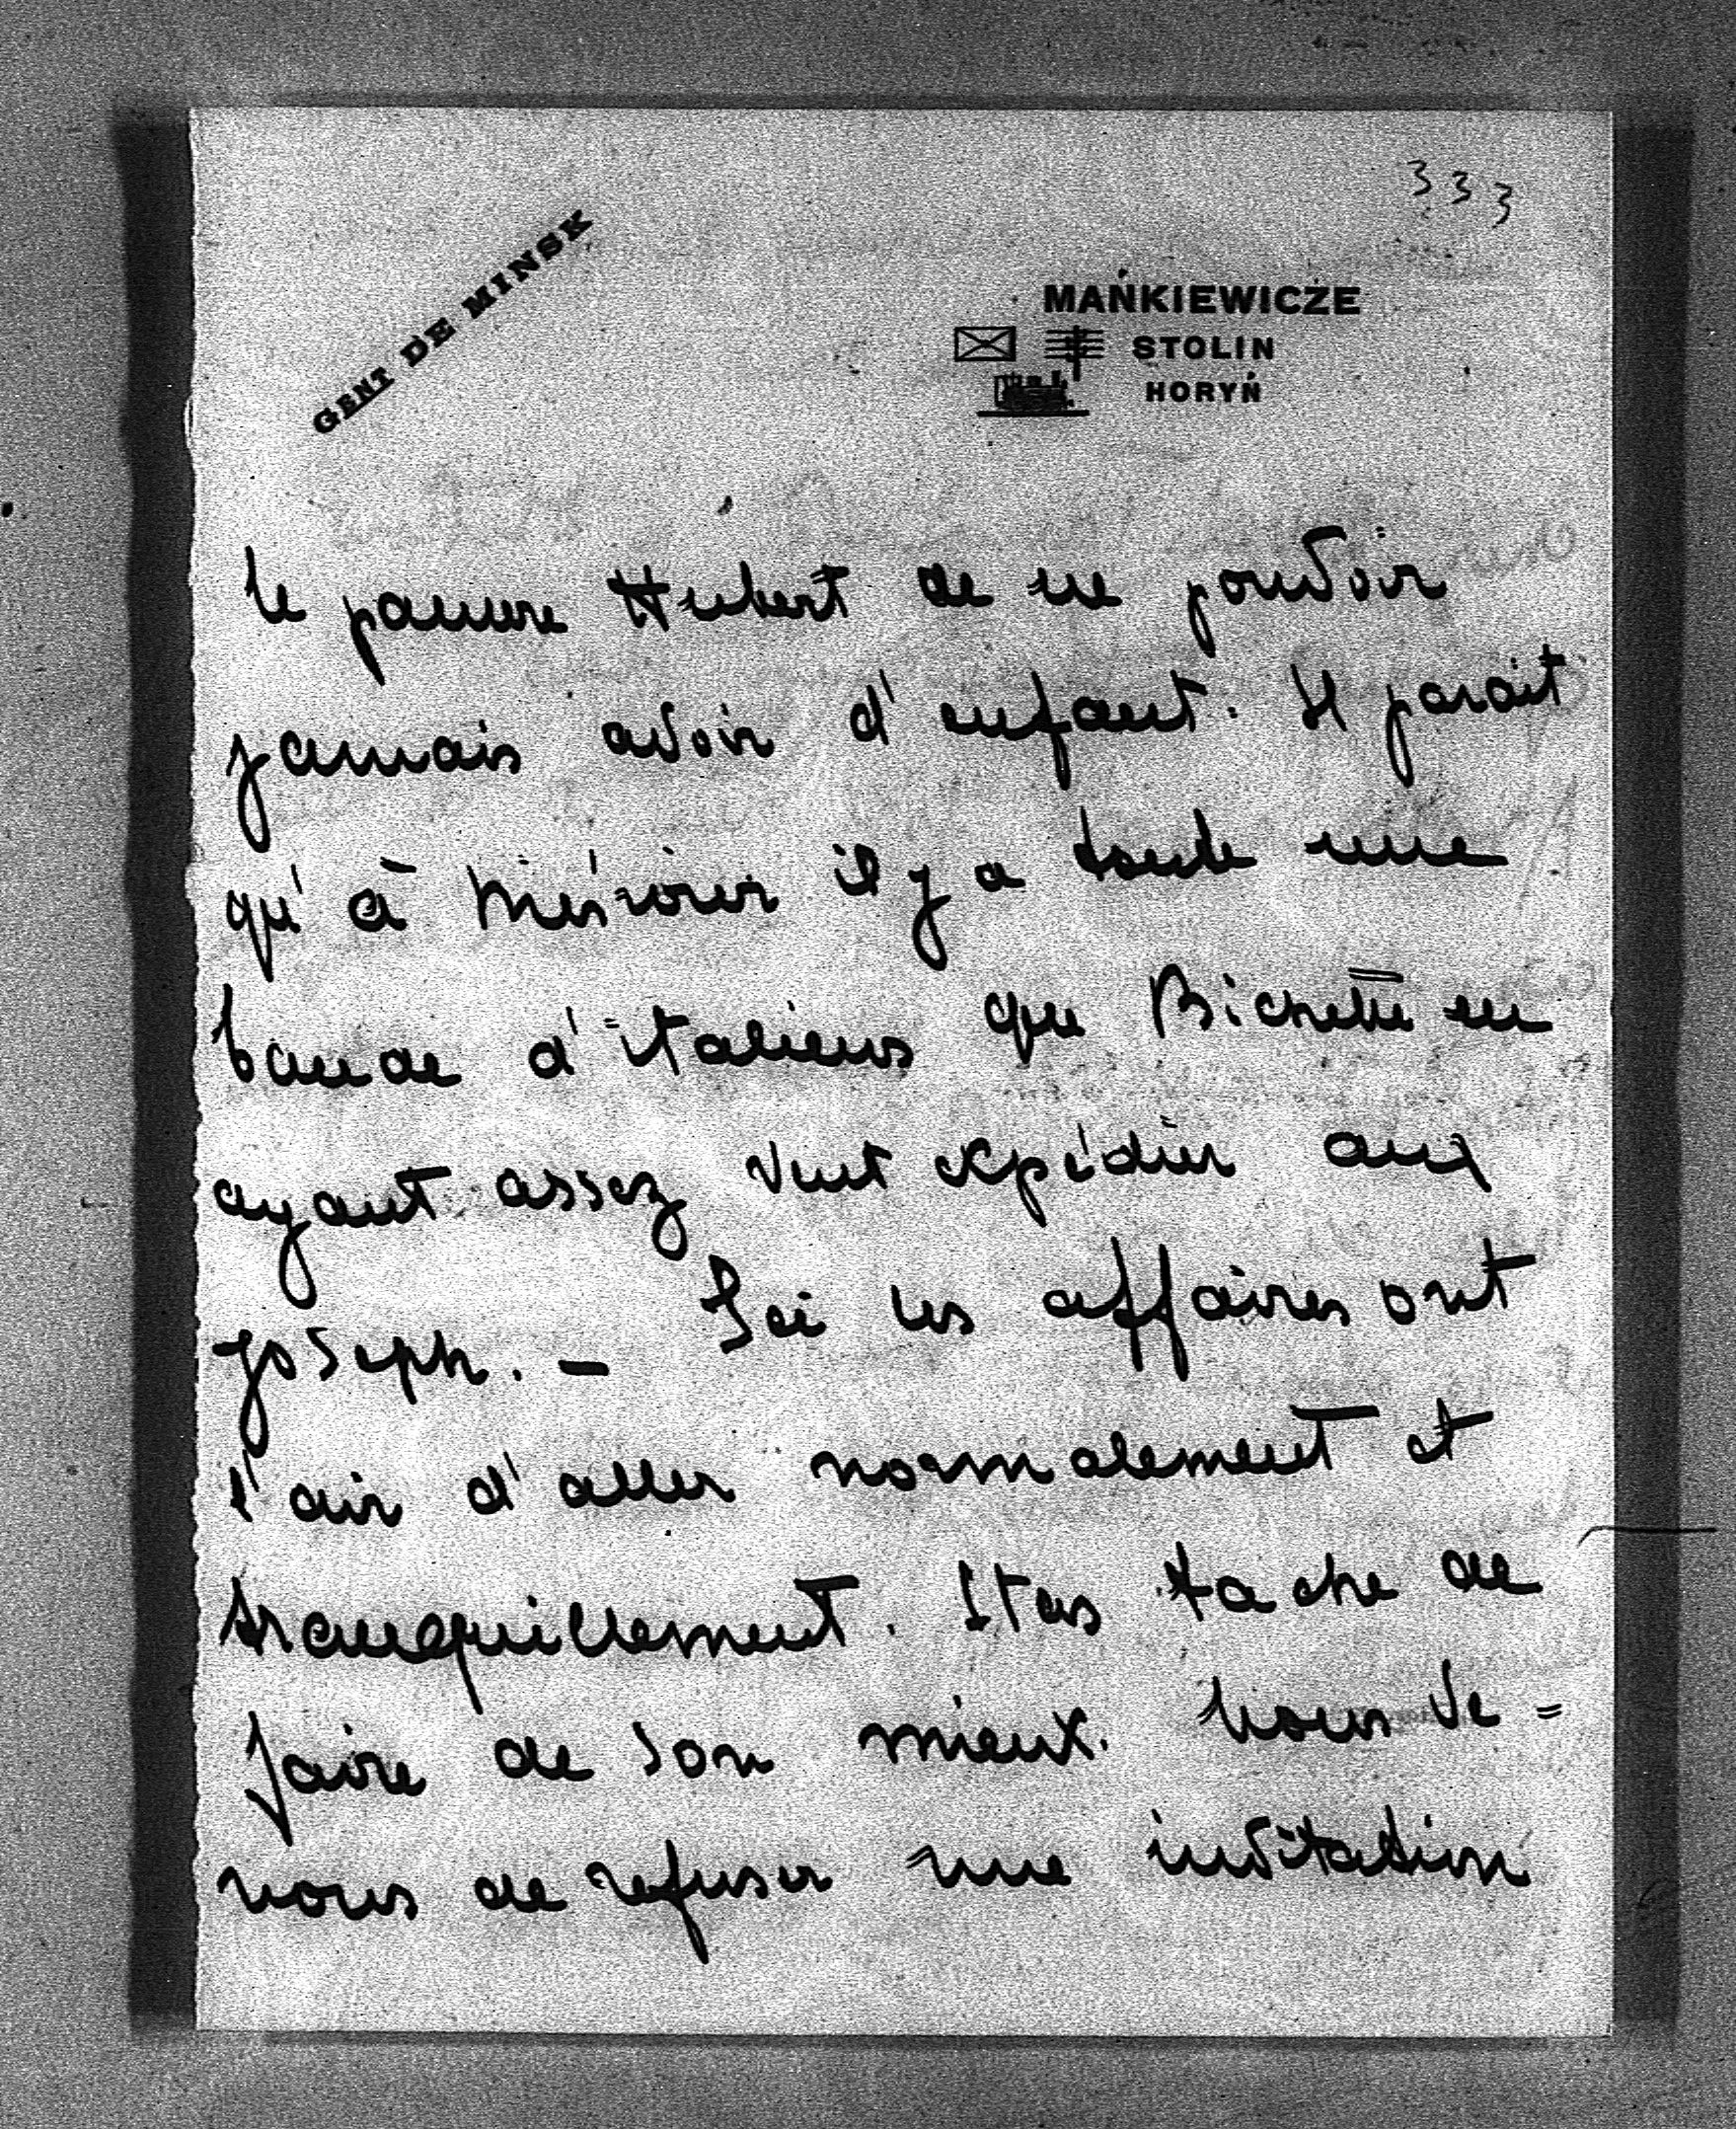 333
GENT DE MINSK
MAŃKIEWICZE
STOLIN
HORYŃ
le pauvre Hubert de ne pouvoir
jamais avoir d'enfant. Il parait
qu'à il y a toute une
bande d'italiens que Bichette en
ayant assez veut expédier aux
Joseph. — Ici les affaires ont
l'air d'aller normalement et
tranquillement. Stas tache de
faire de son mieux. Nous ve=
nons de refuser une invitation